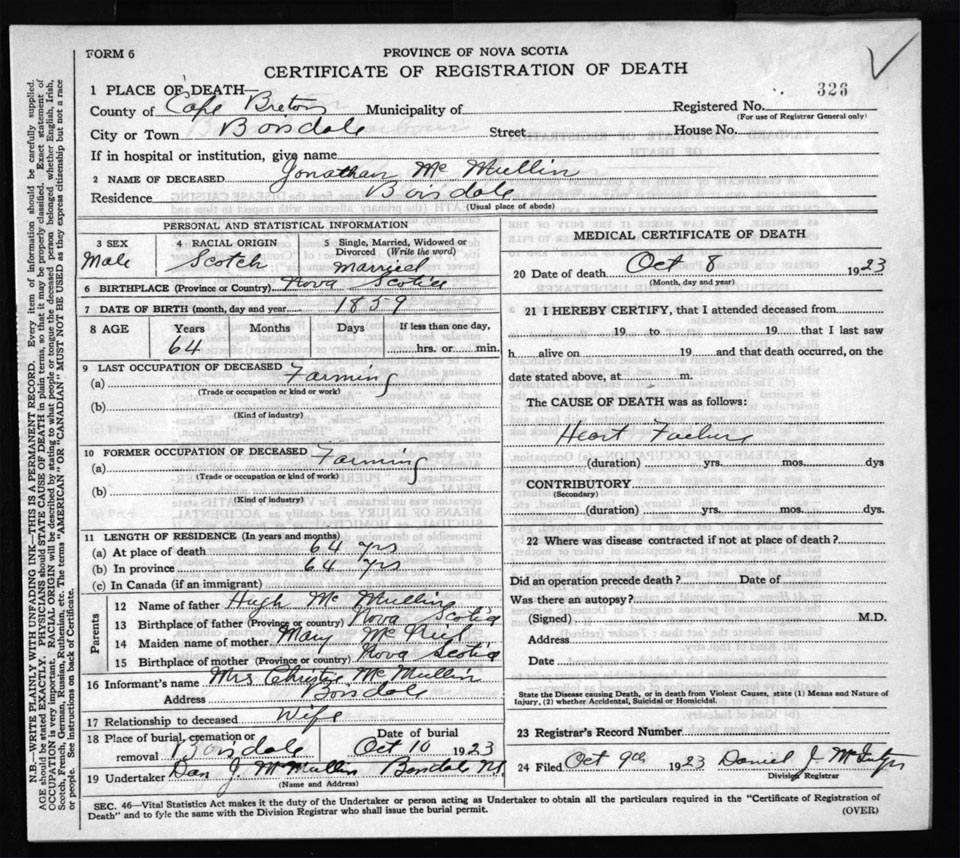 FORM 6
PROVINCE OF NOVA SCOTIA
CERTIFICATE OF REGISTRATION OF DEATH
1 PLACE OF DEATH—
326
County of Cape Breton Municipality of Registered No.
(For use of Registrar General only)
City or Town Boisdale Street House No.
If in hospital or institution, give name
2 NAME OF DECEASED Jonathan Mc Mullin
Residence Boisdale
(Usual place of abode)
PERSONAL AND STATISTICAL INFORMATION
3 SEX Male
4 RACIAL ORIGIN Scotch
5 Single, Married, Widowed or Divorced (Write the word) Married
6 BIRTHPLACE (Province or Country) Nova Scotia
7 DATE OF BIRTH (month, day and year) 1859
8 AGE Years Months Days If less than one day,
64 hrs. or min.
9 LAST OCCUPATION OF DECEASED
(a) Farming
(Trade or occupation or kind of work)
(b)
(Kind of industry)
10 FORMER OCCUPATION OF DECEASED
(a) Farming
(Trade or occupation or kind of work)
(b)
(Kind of industry)
11 LENGTH OF RESIDENCE (In years and months)
(a) At place of death 64 yrs
(b) In province 64 yrs
(c) In Canada (if an immigrant)
Parents
12 Name of father Hugh Mc Mullin
13 Birthplace of father (Province or country) Nova Scotia
14 Maiden name of mother Mary Mc
15 Birthplace of mother (Province or country) Nova Scotia
16 Informant's name Mrs Christie Mc Mullin
Address Boisdale
17 Relationship to deceased Wife
18 Place of burial, cremation or removal Boisdale
Date of burial Oct 10 1923
19 Undertaker Dan J. McMullin Boisdale N.S.
(Name and Address)
MEDICAL CERTIFICATE OF DEATH
20 Date of death Oct 8 1923
(Month, day and year)
21 I HEREBY CERTIFY, that I attended deceased from
19 to 19 that I last saw
h alive on 19 and that death occurred, on the
date stated above, at m.
The CAUSE OF DEATH was as follows:
Heart Failure
(duration) yrs. mos. dys
CONTRIBUTORY
(Secondary)
(duration) yrs. mos. dys.
22 Where was disease contracted if not at place of death?
Did an operation precede death? Date of
Was there an autopsy?
(Signed) M.D.
Address
Date
State the Disease causing Death, or in death from Violent Causes, state (1) Means and Nature of
Injury, (2) whether Accidental, Suicidal or Homicidal.
23 Registrar's Record Number
24 Filed Oct 9th 1923 Daniel J. McIntyre
Division Registrar
SEC. 46—Vital Statistics Act makes it the duty of the Undertaker or person acting as Undertaker to obtain all the particulars required in the "Certificate of Registration of
Death" and to fyle the same with the Division Registrar who shall issue the burial permit.
(OVER)
N.B.—WRITE PLAINLY WITH UNFADING INK—THIS IS A PERMANENT RECORD. Every item of information should be carefully supplied.
AGE should be stated EXACTLY. PHYSICIANS should STATE CAUSE OF DEATH in plain terms, so that it may be properly classified. Exact statement of
OCCUPATION is very important. RACIAL ORIGIN will be described by stating to what people or tongue the deceased person belonged whether English, Irish,
Scotch, French, German, Russian, Ruthenian, etc. The terms "AMERICAN" OR "CANADIAN" MUST NOT BE USED as they express citizenship but not a race
or people. See instructions on back of Certificate.